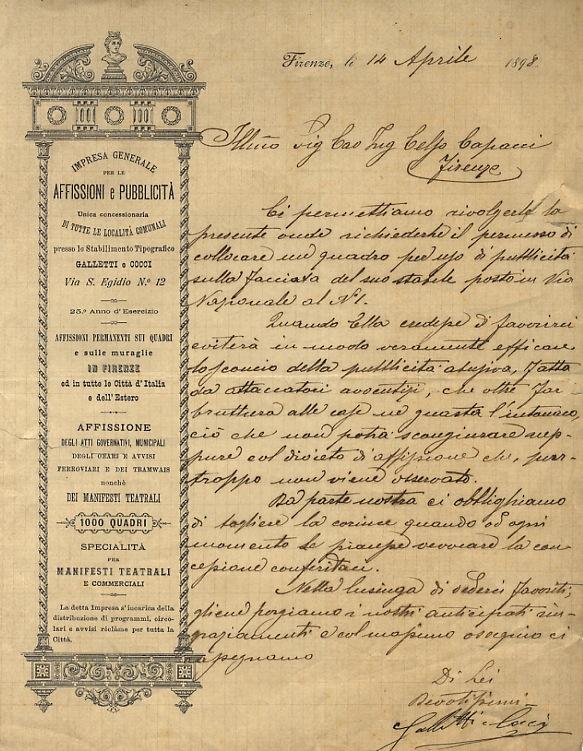 Firenze, li 14 Aprile 1898
Illmo Sig Cav Ing Celso Capacci
Firenze
IMPRESA GENERALE
PER LE
AFFISSIONI e PUBBLICITÀ
Unica concessionaria
DI TUTTE LE LOCALITÀ COMUNALI
presso lo Stabilimento Tipografico
GALLETTI e COCCI
Via S. Egidio N.º 12
25.º Anno d'Esercizio
AFFISSIONI PERMANENTI SUI QUADRI
e sulle muraglie
IN FIRENZE
ed in tutte le Città d'Italia
e dell'Estero
AFFISSIONE
DEGLI ATTI GOVERNATIVI, MUNICIPALI
DEGLI ORARI E AVVISI
FERROVIARI E DEI TRAMWAIS
nonchè
DEI MANIFESTI TEATRALI
1000 QUADRI
SPECIALITÀ
PER
MANIFESTI TEATRALI
E COMMERCIALI
La detta Impresa s'incarica della
distribuzione di programmi, circo-
lari e avvisi réclame per tutta la
Città.
Ci permettiamo rivolgerle la
presente onde richiederle il permesso di
collocare un quadro per uso di pubblicità
sulla facciata del suo stabile posto in Via
Nazionale al Nº1.
Quando Ella credesse di favorirci
eviterà in modo veramente efficace
lo sconcio della pubblicità abusiva, fatta
da attaccatori avventizi, che oltre far
bruttura alle case ne guasta l'intonaco,
ciò che non potrà scongiurare nep-
pure col divieto di affissione che, pur-
troppo non viene osservato.
Da parte nostra ci obblighiamo
di togliere la cornice quando ad ogni
momento le piacesse revocare la con-
cessione conferitaci.
Nella lusinga di vederci favoriti,
gliene porgiamo i nostri anticipati rin-
graziamenti e col massimo ossequio ci
rassegnamo
Di Lei
Devotissimi
Galletti e Cocci